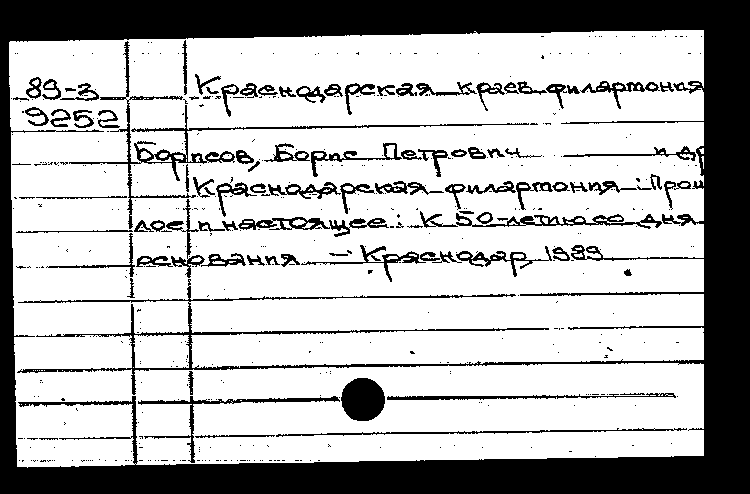 89-3
9252
Краснодарская краев. филармония
Борисов, Борис Петрович и др
Краснодарская филармония: Прош
лое и настоящее: К 50-летию со дня
основания – Краснодар, 1989